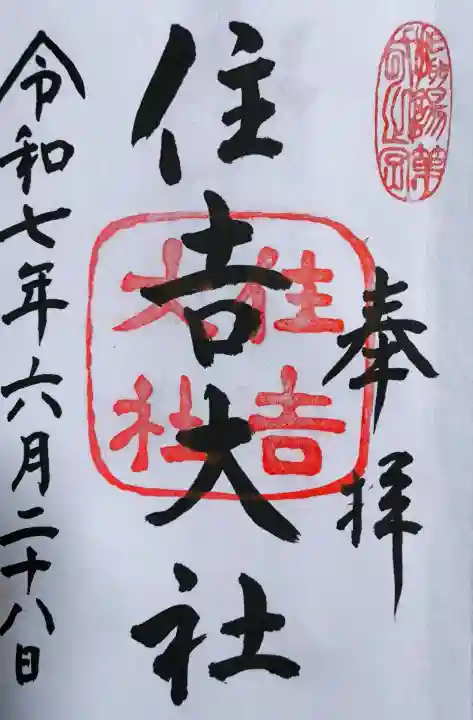 奉拝
住吉大社
住吉
大社
令和七年六月二十八日